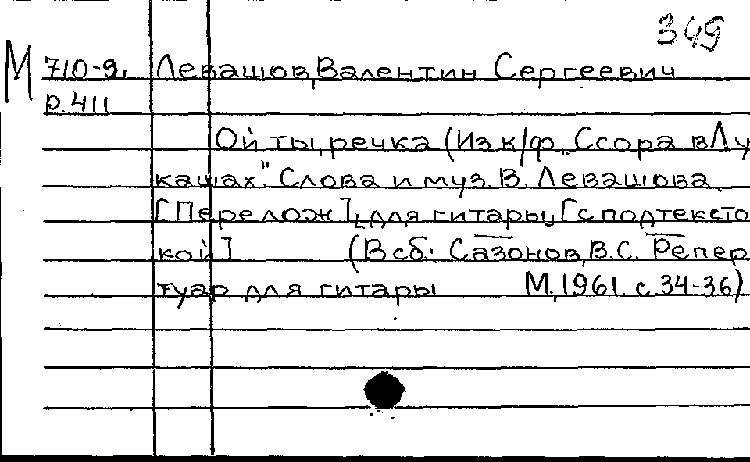 349
М 710-9, Левашов, Валентин Сергеевич
р.411
Ой ты, речка (Из к/ф „Ссора в Лу
кашах". Слова и муз. В. Левашова.
[Перелож], для гитары, [с подтексто
кой] (В сб: Сазонов, В.С. Репер
туар для гитары М, 1961. с.34-36)